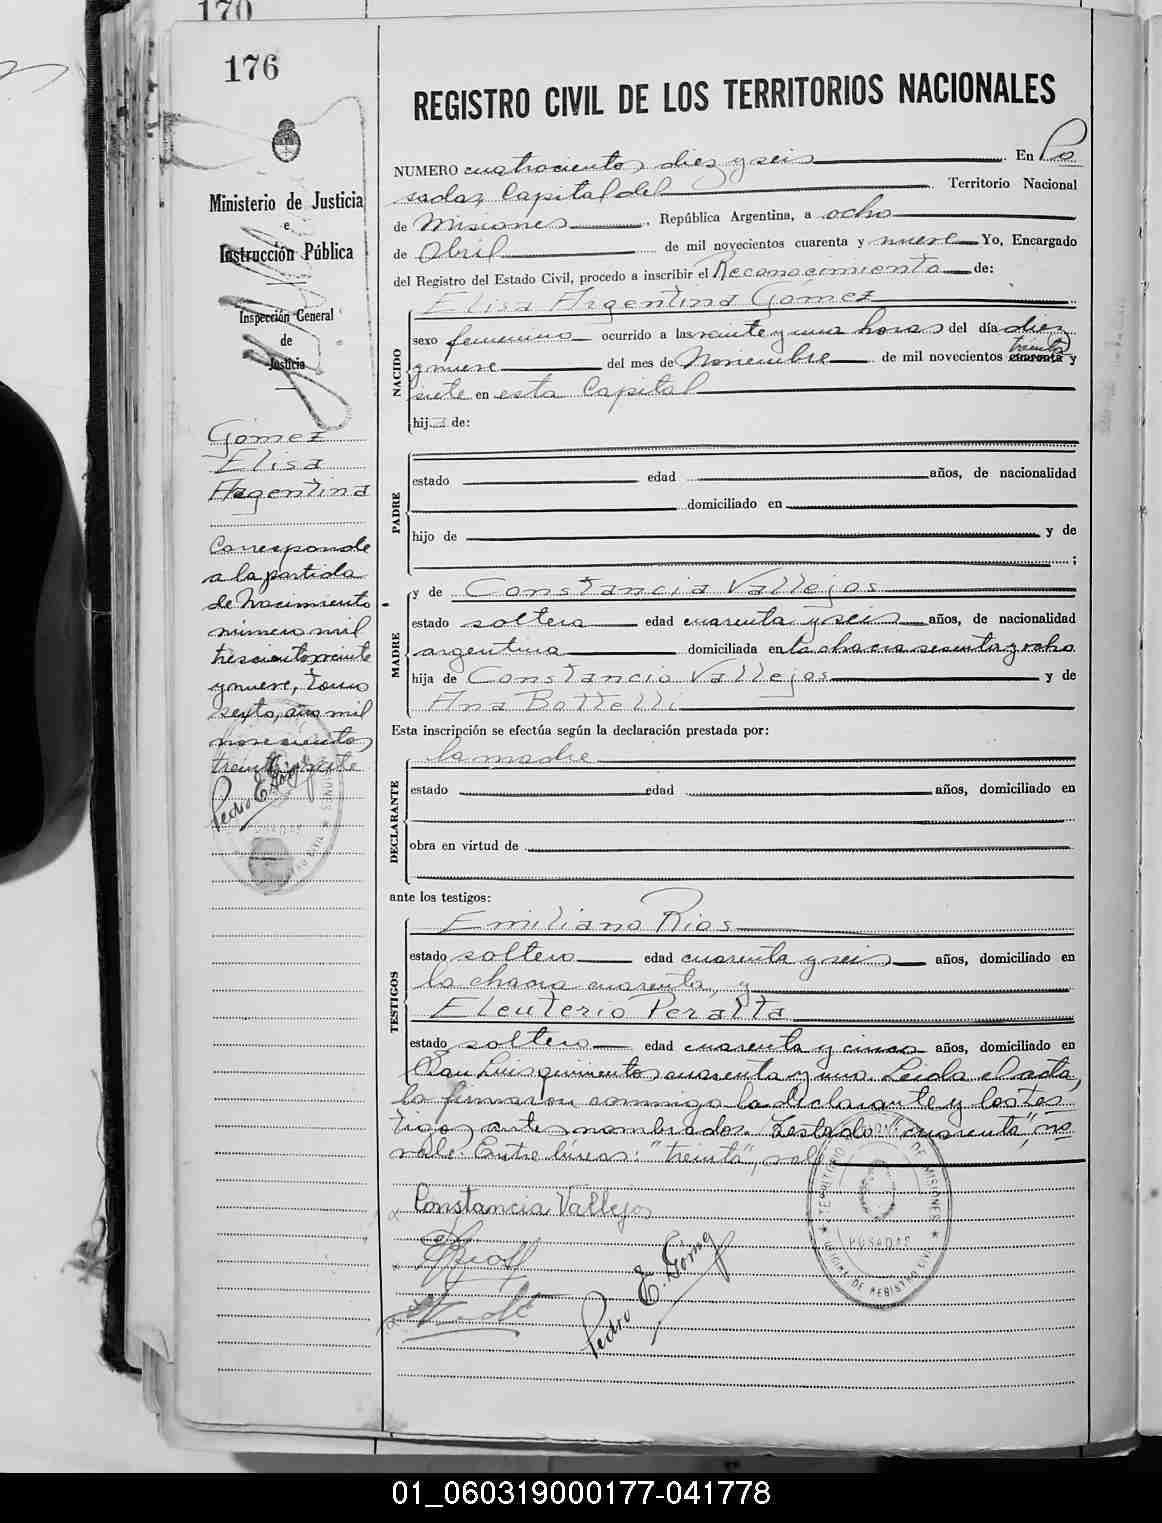 170
176
REGISTRO CIVIL DE LOS TERRITORIOS NACIONALES
Ministerio de Justicia
e
Instrucción Pública
Inspección General
de
Justicia
Gómez
Elisa
Argentina
Corresponde
a la partida
de Nacimiento
número mil
trescientos veinte
y nueve, tomo
sexto, año mil
novecientos
treinta y siete
Pedro E. Gómez
NUMERO cuatrocientos diez y seis En Po
sadas Capital del Territorio Nacional
de Misiones, República Argentina, a ocho
de Abril de mil novecientos cuarenta y nueve Yo, Encargado
del Registro del Estado Civil, procedo a inscribir el Reconocimiento de:
Elisa Argentina Gómez
NACIDO
sexo femenino ocurrido a las veinte y una horas del día diez
treinta
y nueve del mes de Noviembre de mil novecientos cuarenta y
siete en esta Capital
hij de:
PADRE
estado edad años, de nacionalidad
domiciliado en
hijo de y de
;
MADRE
y de Constancia Vallejos
estado soltera edad cuarenta y seis años, de nacionalidad
argentina domiciliada en la chacra sesenta y ocho
hija de Constancio Vallejos y de
Ana Bottelli
Esta inscripción se efectúa según la declaración prestada por:
la madre
DECLARANTE
estado edad años, domiciliado en
obra en virtud de
ante los testigos:
TESTIGOS
Emiliano Rios
estado soltero edad cuarenta y seis años, domiciliado en
la chacra cuarenta, y
Eleuterio Peralta
estado soltero edad cuarenta y cinco años, domiciliado en
San Luis quinientos cuarenta y uno. Leida el acta,
la firmaron conmigo la declarante y los tes
tigos antes nombrados. Testado: "cuarenta", no
vale. Entre líneas: "treinta", vale
Constancia Vallejos
Pedro E. Gómez
TERRITORIO DE MISIONES
POSADAS
OFICINA DE REGISTRO CIVIL
01_060319000177-041778